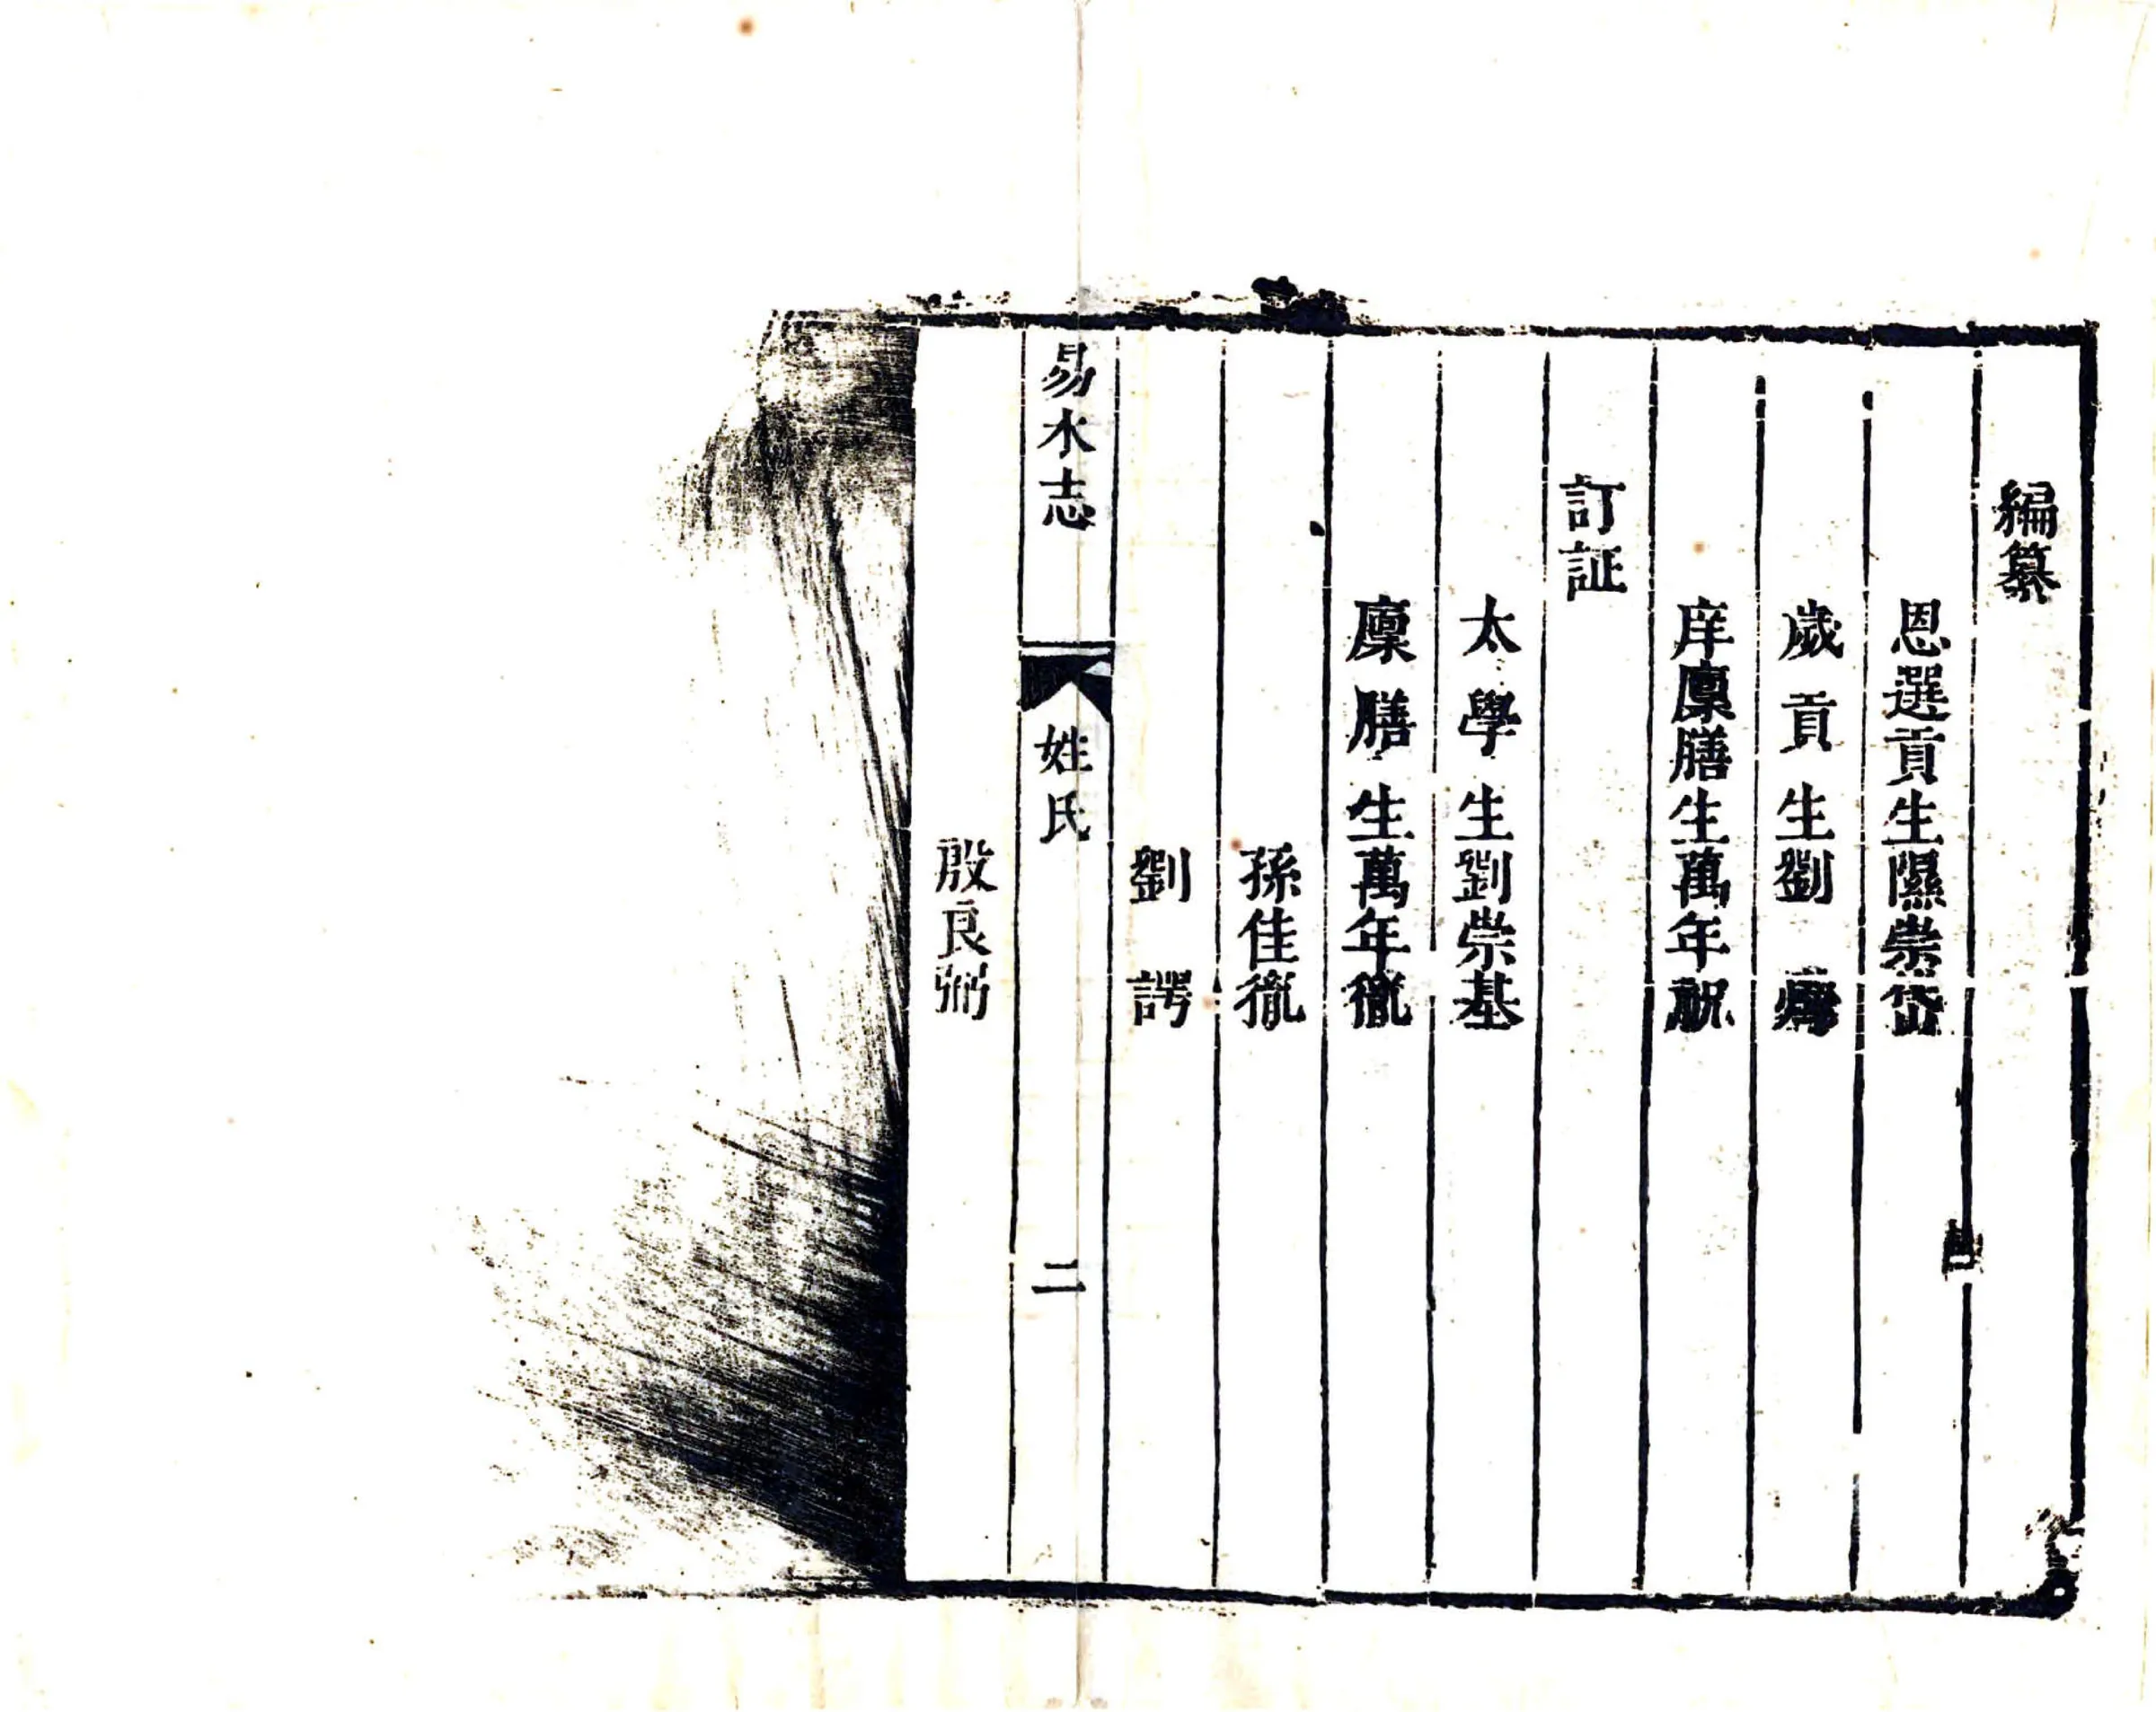 編纂
恩選貢生隰崇岱
歲貢生劉
庠廩膳生萬年
訂証
太學生劉崇基
廩膳生萬年
孫佳胤
劉諤
易水志
姓氏
二
殷良弼